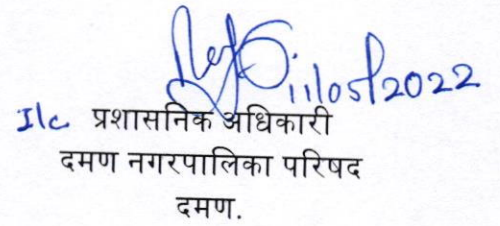 11/05/2022
I/c प्रशासनिक अधिकारी
दमण नगरपालिका परिषद
दमण.